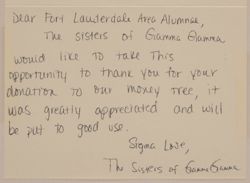 Dear Fort Lauderdale Area Alumnae,
The sisters of Gamma Gamma
would like to take This
opportunity to thank you for your
donation to our money tree, it
was greatly appreciated and will
be put to good use.
Sigma Love,
The Sisters of Gamma Gamma